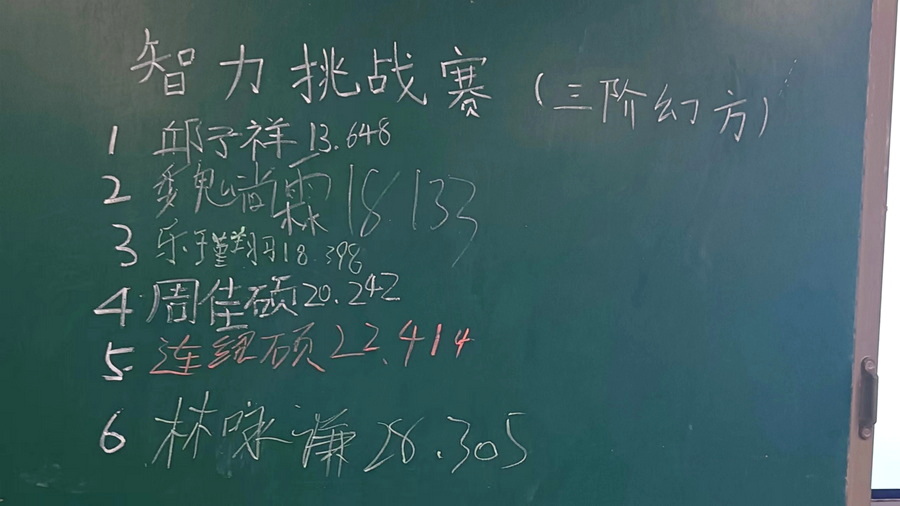 智力挑战赛（三阶幻方）
1 邱子祥 13.648
2 魏尚霖 18.133
3 乐子瑾翔 18.398
4 周佳硕 20.242
5 连硕 22.414
6 林咏谦 28.305